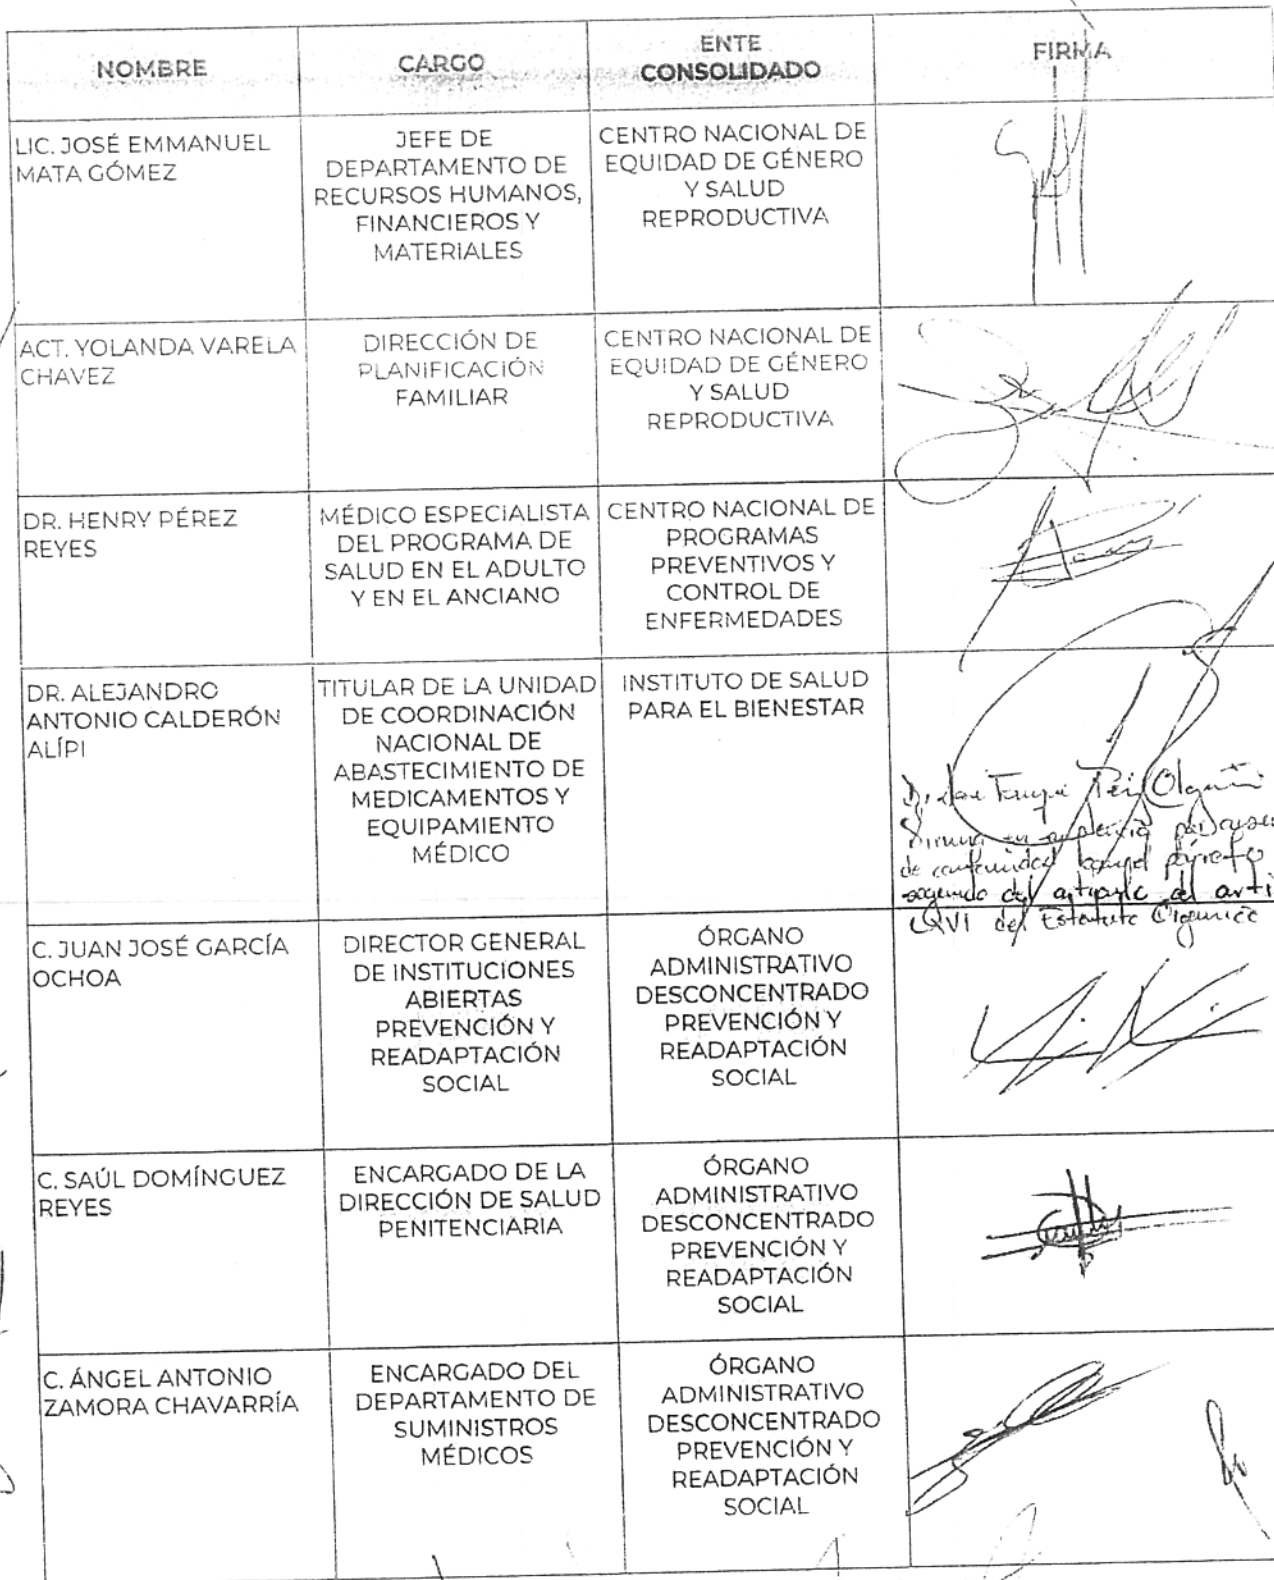 NOMBRE
CARGO
ENTE
CONSOLIDADO
FIRMA
LIC. JOSÉ EMMANUEL
MATA GÓMEZ
JEFE DE
DEPARTAMENTO DE
RECURSOS HUMANOS,
FINANCIEROS Y
MATERIALES
CENTRO NACIONAL DE
EQUIDAD DE GÉNERO
Y SALUD
REPRODUCTIVA
ACT. YOLANDA VARELA
CHAVEZ
DIRECCIÓN DE
PLANIFICACIÓN
FAMILIAR
CENTRO NACIONAL DE
EQUIDAD DE GÉNERO
Y SALUD
REPRODUCTIVA
DR. HENRY PÉREZ
REYES
MÉDICO ESPECIALISTA
DEL PROGRAMA DE
SALUD EN EL ADULTO
Y EN EL ANCIANO
CENTRO NACIONAL DE
PROGRAMAS
PREVENTIVOS Y
CONTROL DE
ENFERMEDADES
DR. ALEJANDRO
ANTONIO CALDERÓN
ALÍPI
TITULAR DE LA UNIDAD
DE COORDINACIÓN
NACIONAL DE
ABASTECIMIENTO DE
MEDICAMENTOS Y
EQUIPAMIENTO
MÉDICO
INSTITUTO DE SALUD
PARA EL BIENESTAR
en
de
segundo del
del Estatuto
C. JUAN JOSÉ GARCÍA
OCHOA
DIRECTOR GENERAL
DE INSTITUCIONES
ABIERTAS
PREVENCIÓN Y
READAPTACIÓN
SOCIAL
ÓRGANO
ADMINISTRATIVO
DESCONCENTRADO
PREVENCIÓN Y
READAPTACIÓN
SOCIAL
C. SAÚL DOMÍNGUEZ
REYES
ENCARGADO DE LA
DIRECCIÓN DE SALUD
PENITENCIARIA
ÓRGANO
ADMINISTRATIVO
DESCONCENTRADO
PREVENCIÓN Y
READAPTACIÓN
SOCIAL
C. ÁNGEL ANTONIO
ZAMORA CHAVARRÍA
ENCARGADO DEL
DEPARTAMENTO DE
SUMINISTROS
MÉDICOS
ÓRGANO
ADMINISTRATIVO
DESCONCENTRADO
PREVENCIÓN Y
READAPTACIÓN
SOCIAL